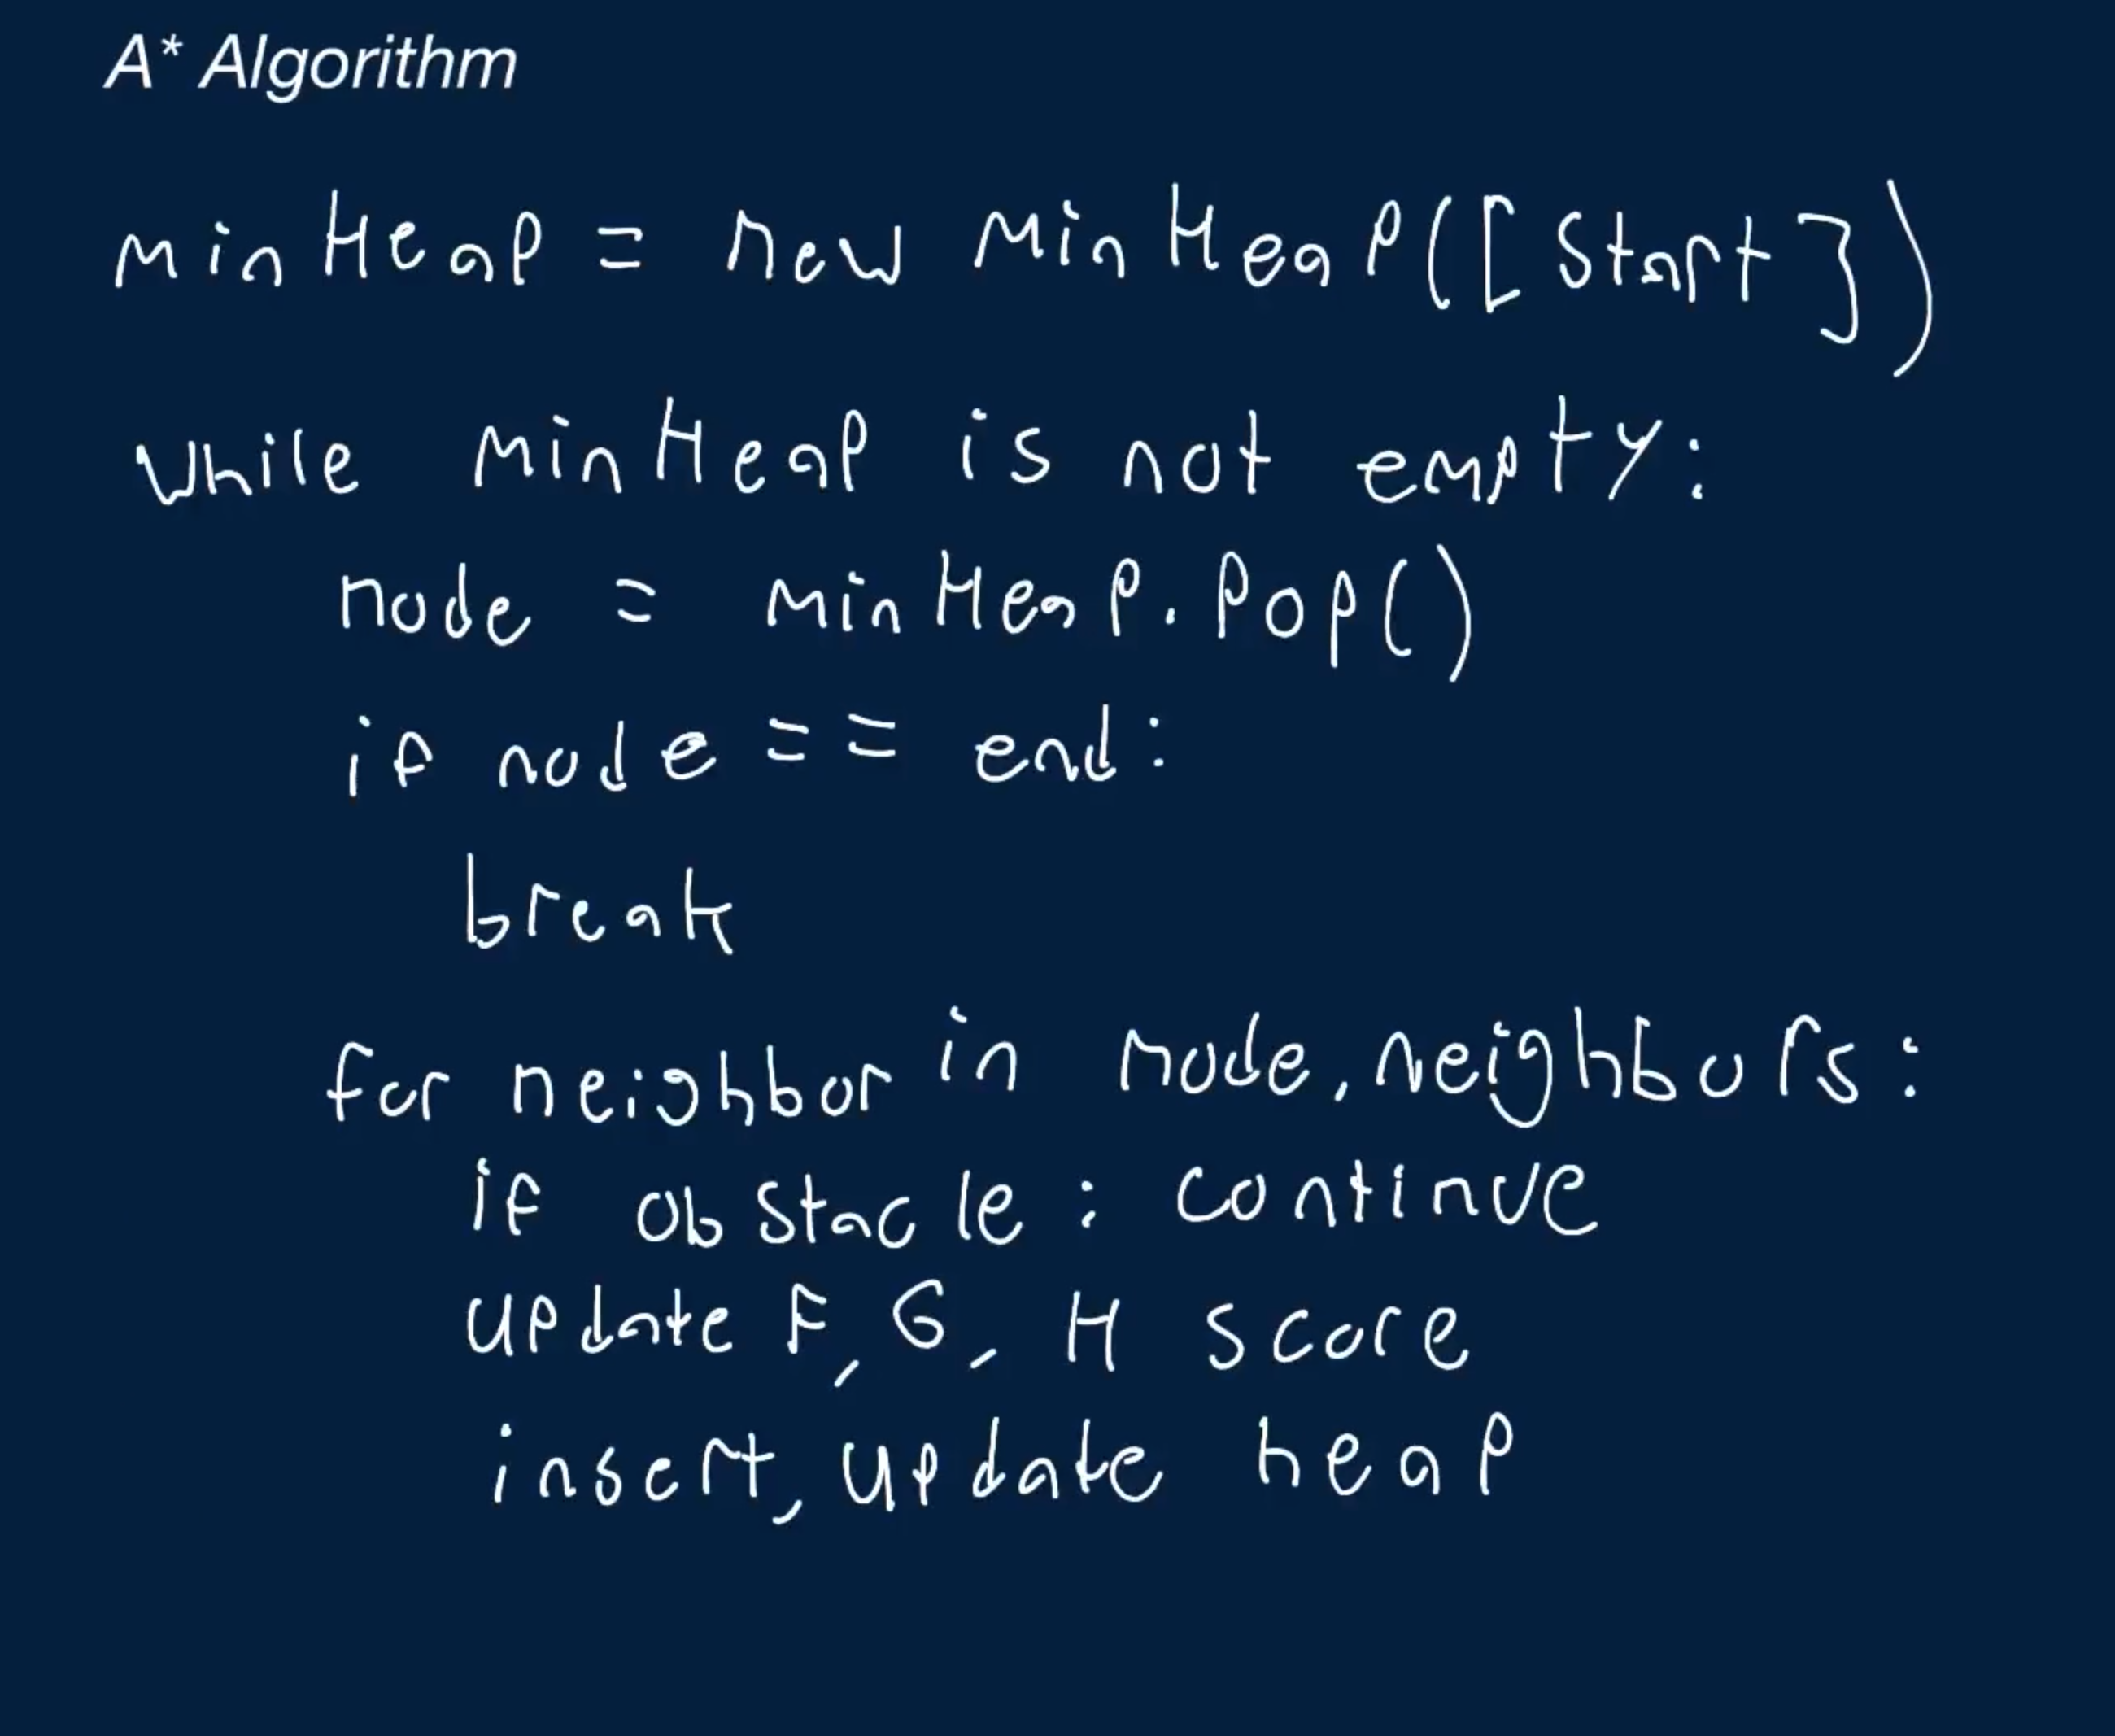 A* Algorithm
minHeap = new MinHeap([start])
while minHeap is not empty:
node = minHeap.pop()
if node == end:
break
for neighbor in node.neighbors:
if obstacle: continue
update F, G, H score
insert, update heap